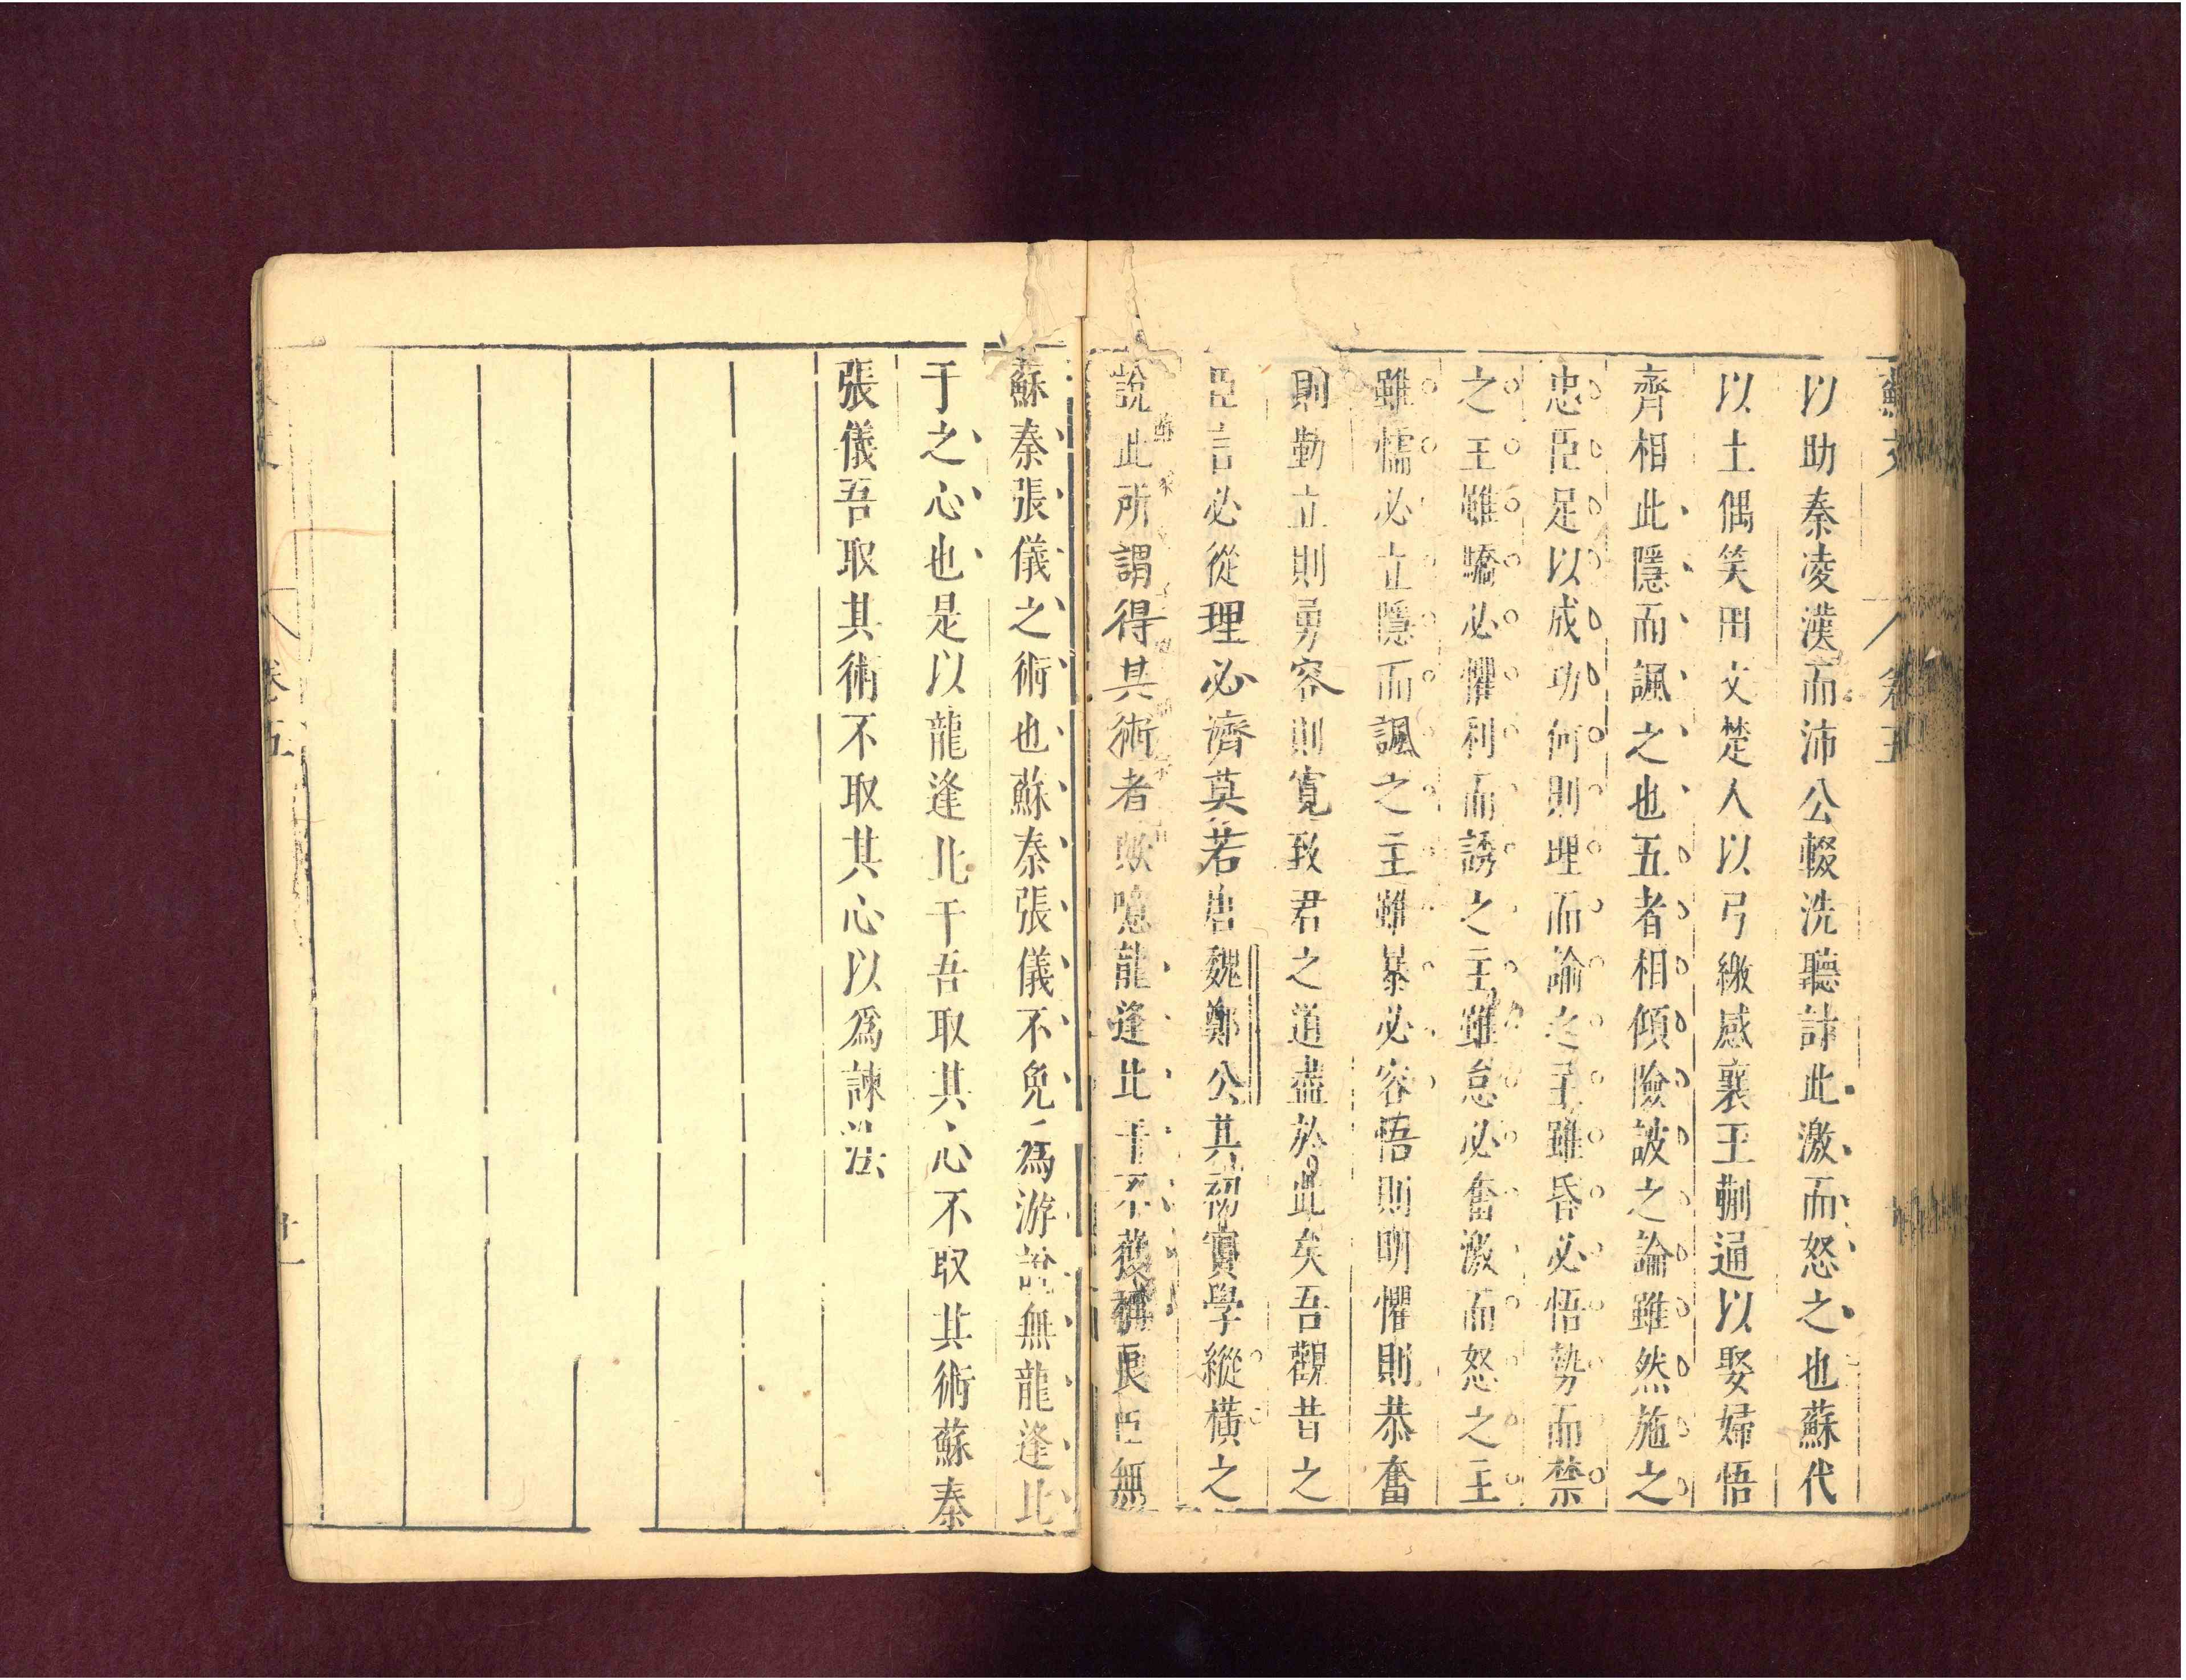 蘇文 卷五
以助秦凌漢而沛公輟洗聽計此激而怒之也蘇代
以土偶笑田文楚人以弓繳感襄王蒯通以娶婦悟
齊相此隱而諷之也五者相傾險詖之論雖然施之
忠臣足以成功何則理而諭之主雖昏必悟勢而禁
之主雖驕必懼利而誘之主雖怠必奮激而怒之主
雖懦必立隱而諷之主雖暴必容悟則明懼則恭奮
則勤立則勇容則寬致君之道盡於此矣吾觀昔之
臣言必從理必濟莫若唐魏鄭公其初實學縱橫之
說此所謂得其術者歟噫龍逢比干不獲稱良臣無
蘇秦張儀之術也蘇秦張儀不免爲游說無龍逢比
干之心也是以龍逢比干吾取其心不取其術蘇秦
張儀吾取其術不取其心以爲諫法
卷五
廿一